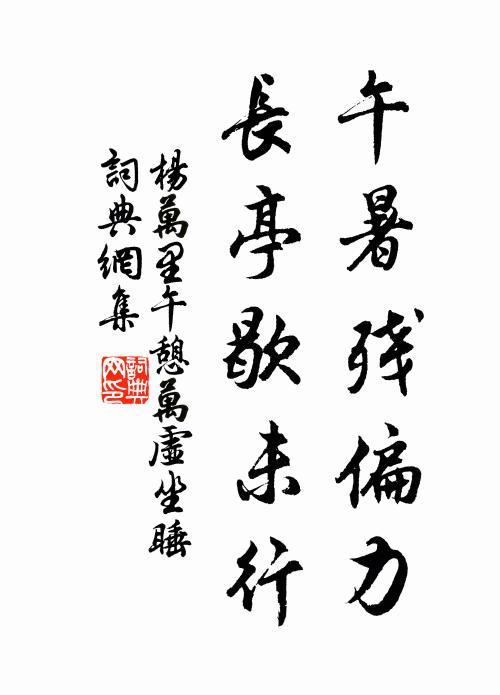 午暑残偏力
長亭歇未行
楊萬里午憩萬虛坐睡
詞典網集
詞典網印